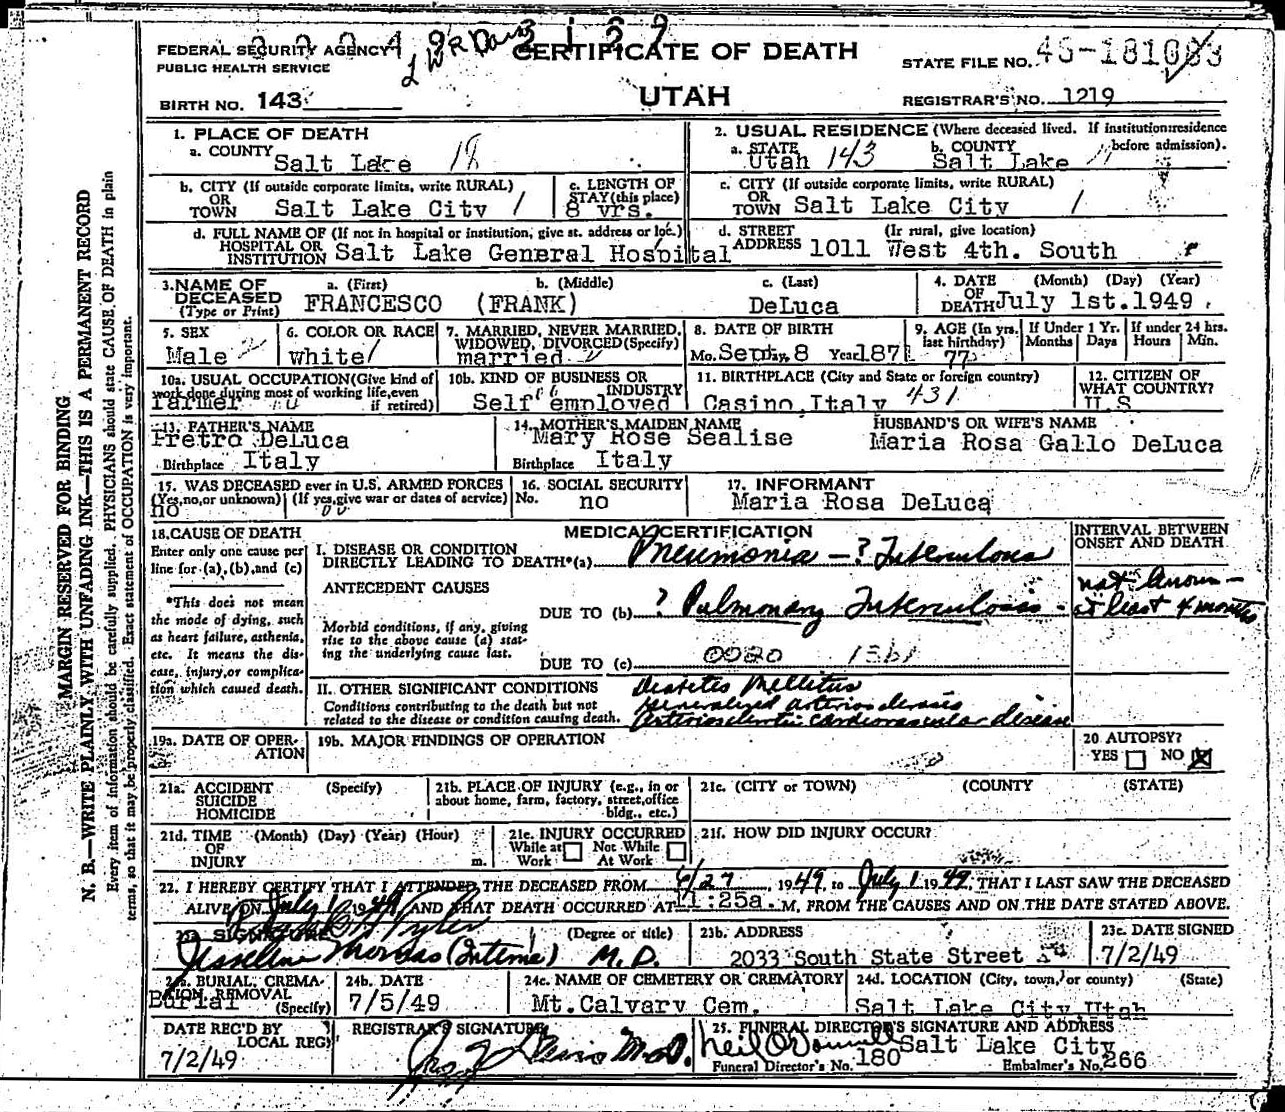 FEDERAL SECURITY AGENCY
PUBLIC HEALTH SERVICE
CERTIFICATE OF DEATH
STATE FILE NO.
BIRTH NO. 143
UTAH
REGISTRAR'S NO. 1219
MARGIN RESERVED FOR BINDING
N. B.—WRITE PLAINLY WITH UNFADING INK—THIS IS A PERMANENT RECORD
Every item of information should be carefully supplied. PHYSICIANS should state CAUSE OF DEATH in plain
terms, so that it may be properly classified. Exact statement of OCCUPATION is very important.
1. PLACE OF DEATH
a. COUNTY Salt Lake 18
2. USUAL RESIDENCE (Where deceased lived. If institution: residence before admission).
a. STATE Utah 143 b. COUNTY Salt Lake
b. CITY (If outside corporate limits, write RURAL) OR TOWN Salt Lake City 1
c. LENGTH OF STAY (this place) 8 yrs.
c. CITY (If outside corporate limits, write RURAL) OR TOWN Salt Lake City 1
d. FULL NAME OF (If not in hospital or institution, give st. address or loc.) HOSPITAL OR INSTITUTION Salt Lake General Hospital
d. STREET ADDRESS (If rural, give location) 1011 West 4th. South
3. NAME OF DECEASED (Type or Print)
a. (First) FRANCESCO b. (Middle) (FRANK) c. (Last) DeLuca
4. DATE OF DEATH (Month) (Day) (Year) July 1st. 1949
5. SEX Male
6. COLOR OR RACE white
7. MARRIED, NEVER MARRIED, WIDOWED, DIVORCED (Specify) married
8. DATE OF BIRTH Mo. Sept. Day 8 Year 1871
9. AGE (In yrs. last birthday) 77
If Under 1 Yr. Months Days
If under 24 hrs. Hours Min.
10a. USUAL OCCUPATION (Give kind of work done during most of working life, even if retired) farmer
10b. KIND OF BUSINESS OR INDUSTRY Self employed
11. BIRTHPLACE (City and State or foreign country) Casino, Italy 431
12. CITIZEN OF WHAT COUNTRY? U.S
13. FATHER'S NAME Pretro DeLuca
Birthplace Italy
14. MOTHER'S MAIDEN NAME Mary Rose Sealise
Birthplace Italy
HUSBAND'S OR WIFE'S NAME
Maria Rosa Gallo DeLuca
15. WAS DECEASED ever in U.S. ARMED FORCES
(Yes, no, or unknown) (If yes, give war or dates of service)
no
16. SOCIAL SECURITY No. no
17. INFORMANT
Maria Rosa DeLuca
18. CAUSE OF DEATH
Enter only one cause per line for (a), (b), and (c)
*This does not mean the mode of dying, such as heart failure, asthenia, etc. It means the disease, injury, or complication which caused death.
MEDICAL CERTIFICATION
INTERVAL BETWEEN ONSET AND DEATH
I. DISEASE OR CONDITION DIRECTLY LEADING TO DEATH*(a) Pneumonia — ? Tuberculous
ANTECEDENT CAUSES
DUE TO (b) ? Pulmonary Tuberculosis -
not known - at least 4 months
Morbid conditions, if any, giving rise to the above cause (a) stating the underlying cause last.
DUE TO (c)
II. OTHER SIGNIFICANT CONDITIONS
Conditions contributing to the death but not related to the disease or condition causing death.
Diabetes Mellitus
Generalized arteriosclerosis
Arteriosclerotic cardiovascular disease
19a. DATE OF OPERATION
19b. MAJOR FINDINGS OF OPERATION
20 AUTOPSY?
YES NO
21a. ACCIDENT SUICIDE HOMICIDE (Specify)
21b. PLACE OF INJURY (e.g., in or about home, farm, factory, street, office bldg., etc.)
21c. (CITY or TOWN) (COUNTY) (STATE)
21d. TIME OF INJURY (Month) (Day) (Year) (Hour) m.
21e. INJURY OCCURRED
While at Work Not While At Work
21f. HOW DID INJURY OCCUR?
22. I HEREBY CERTIFY THAT I ATTENDED THE DECEASED FROM 6/27, 1949, to July 1 1949, THAT I LAST SAW THE DECEASED
ALIVE ON July 1 1949 AND THAT DEATH OCCURRED AT 11:25a. M, FROM THE CAUSES AND ON THE DATE STATED ABOVE.
23a. SIGNATURE (Degree or title)
(Interne) M.D.
23b. ADDRESS
2033 South State Street
23c. DATE SIGNED
7/2/49
24a. BURIAL, CREMATION, REMOVAL (Specify) Burial
24b. DATE
7/5/49
24c. NAME OF CEMETERY OR CREMATORY
Mt. Calvary Cem.
24d. LOCATION (City, town, or county) (State)
Salt Lake City, Utah
DATE REC'D BY LOCAL REG.
7/2/49
REGISTRAR'S SIGNATURE
M.D.
25. FUNERAL DIRECTOR'S SIGNATURE AND ADDRESS
Neil O'Donnell Salt Lake City
Funeral Director's No. 180 Embalmer's No. 266